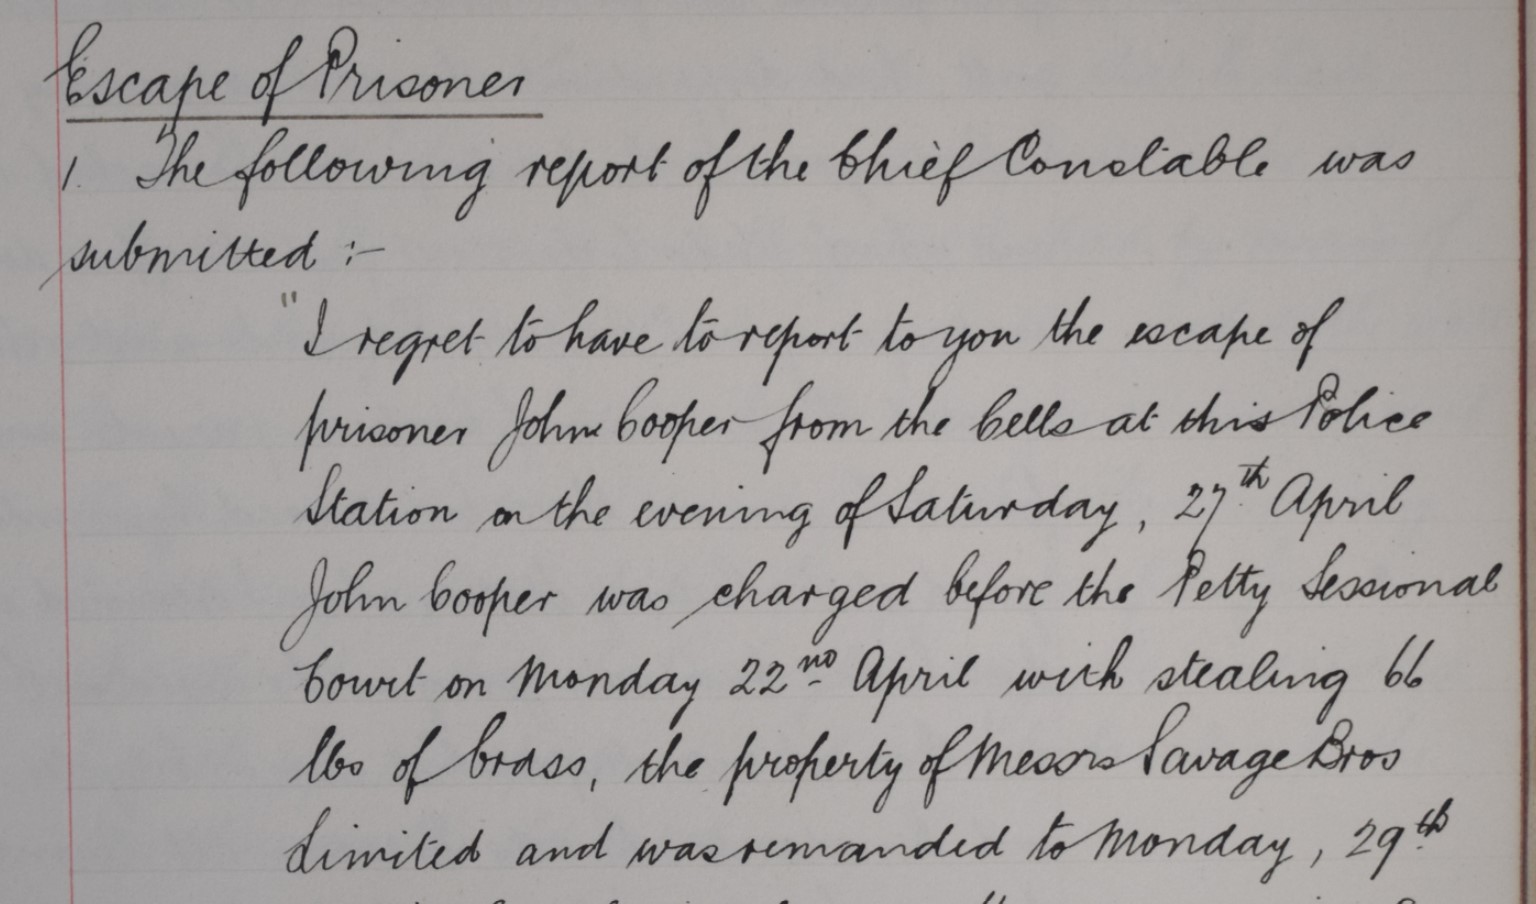 Escape of Prisoner
1. The following report of the Chief Constable was
submitted :-
"I regret to have to report to you the escape of
prisoner John Cooper from the Cells at this Police
Station on the evening of Saturday, 27th April
John Cooper was charged before the Petty Sessional
Court on Monday 22nd April with stealing 66
lbs of brass, the property of Messrs Savage Bros
Limited and was remanded to Monday, 29th